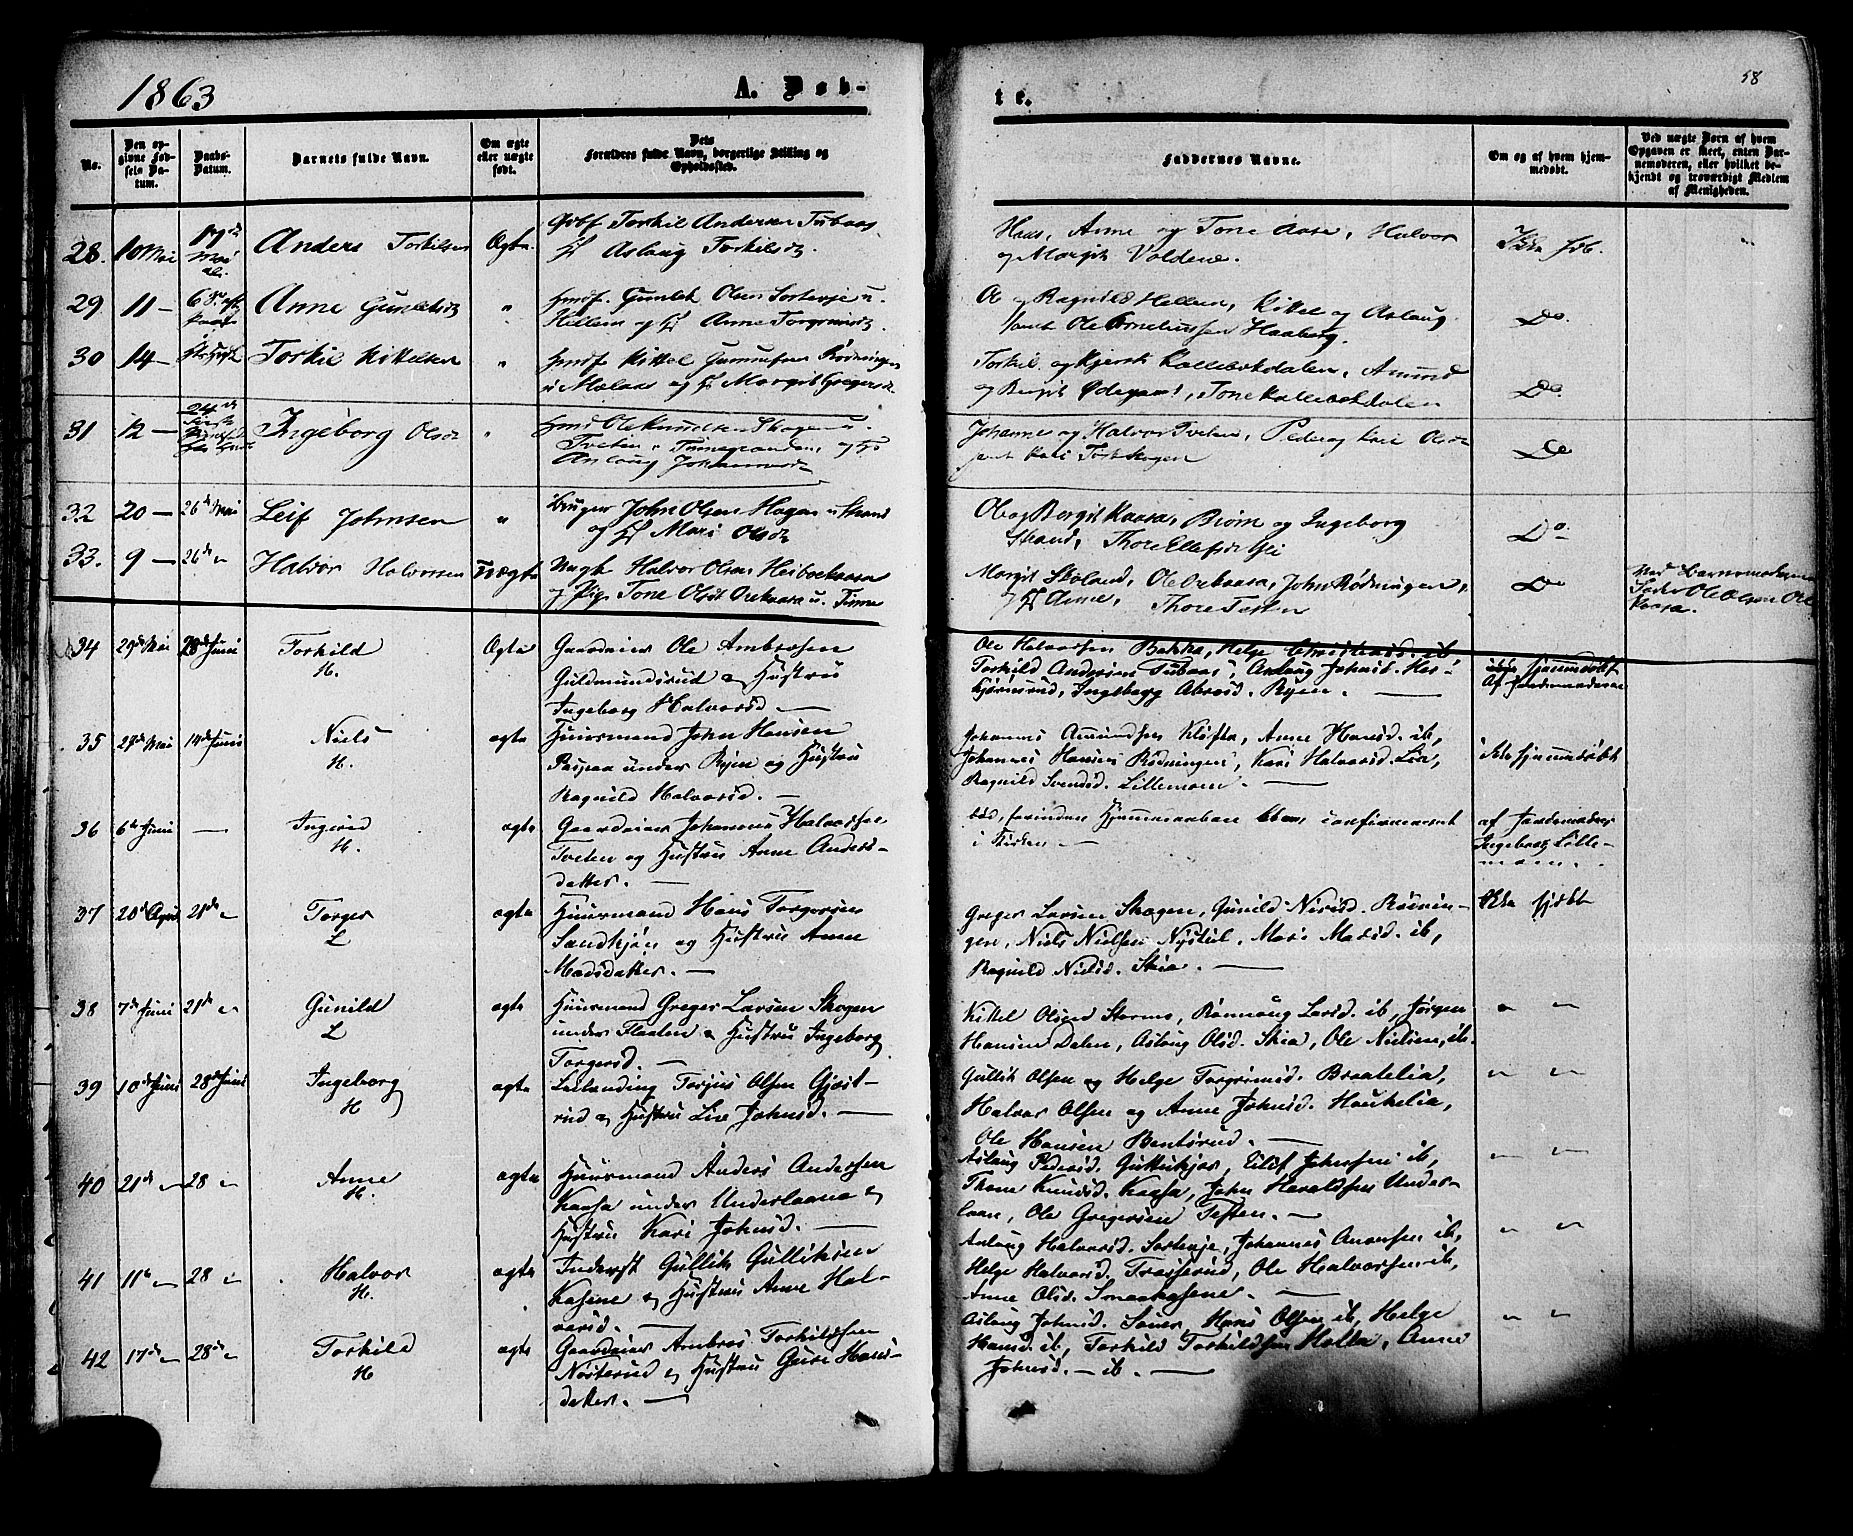 1863
A. Døb-
te.
58
No.
Den op-
givne Fød-
sels Da-
tum.
Daabs-
Datum.
Barnets fulde Navn.
Om ægte
eller uægte
født.
Dets
Forældres fulde Navn, borgerlige Stilling og
Opholdssted.
Faddernes Navne.
Om og af hvem hjem-
medøbt.
Ved uægte Børn af hvem
Opgaven er skeet, enten Bar-
nemoderen, eller hvilket be-
kjendt og troværdigt Medlem
af Menigheden.
28. 10 Mai 17de Anders Torkilsen Ægte Torkil Andersen Tubaas
Aslaug Torkilsdt.
Hans, Anne og Tone Aase, Halvor
og Margit Voldene.
Ikke
29 11 — Anne Gunleksdt " Gunlek Olsen Sortevje u.
Hellem og Anne Torgrimsdt.
Ole og Ragnild Hellem, Kittel og Aslaug
samt Ole Corneliussen Haaberg.
Do.
30 14 — Torkil Kittelsen " Kittel Gunnufsen Rødningen
u Moland og Margit Gregersdt.
Torkil og Kjersti Kallebekdalen, Amund
og Bergit Ødegaard, Tone Kallebekdalen
Do.
31 12 — 24de Ingeborg Olsdt " Ole Knudsen Skogen u.
Tveten i Tinnegranden, og
Aslaug Johannesdt.
Johanne og Halvor Tveten, Peder og Kari Olsdt
samt Kari Skogen
Do
32 20 — 26de Mai Leif Johnsen " Bruger John Olsen Hagen u Strand
og Mari Olsdt.
Ole og Bergit Kaasa, Biørn og Ingeborg
Strand, Thore Ellefsdt Lie
Do
33. 9 — 26de " Halvor Halvorsen Uægte Ungk. Halvor Olsen Heibekkaasa
og Pig. Tone Olsdt Orekaasa u. Tinne
Margit Skoland, Ole Orekaasa, John Rødningen,
og Anne, Thore Testen
Do
Ved Barnemoderens
Fader Ole Olsen Ore
kaasa.
34 29de Mai 28de Juni Torkild
H.
Ægte Gaardeier Ole Ambrosen
Guldmundsrud og Hustru
Ingeborg Halvorsd. —
Ole Halvorsen Bakka, Helge Christensd. ib
Torkild Andersen Tubaas, Aslaug Johnsd. Hes-
hjørnsrud, Ingeborg Abrosd. Ryen. —
hjemmedøbt
Af Jordemoderen
35 29de Mai 14de Juni Niels
H.
ægte Huusmand John Hansen
Paspaa under Ryen og Hustru
Ragnild Halvorsd. —
Johannes Amundsen Kløfta, Anne Hansd. ib,
Johannes Hansen Rødningen, Kari Halvorsd. Lia,
Ragnild Svendsd. Lillemoen. —
ikke hjemmedøbt
36 6te Juni — Ingrid
H.
ægte Gaardeier Johannes Halvorsen
Tveten og Hustru Anne Anders-
datter. —
død, forinden Hjemmedaaben blev confirmeret
i Kirken —
af Jordemoder
Ingeborg Lille-
moen. —
37 20de April 21de " Torger
L
ægte Huusmand Hans Torgersen
Sandhjøn og Hustru Anne
Madsdatter. —
Greger Larsen Skogen, Gunild Nirisd. Rødnin-
gen, Niels Nielsen Nystul, Mari Marisd. ib,
Ragnild Nielsd. Skia. —
Ikke hjdøbt
38 7de Juni 21de " Gunild
L
ægte Huusmand Greger Larsen Skogen
under Flaaten og Hustru Ingeborg
Torgersd. —
Kittel Olsen Stormo, Rønnaug Larsd. ib, Jørgen
Hansen Dalen, Aslaug Olsd. Skia, Ole Nielsen, ib.
" "
39 10de Juni 28de Juni Ingeborg
H
ægte Leilending Torjus Olsen Gjøst-
rud og Hustru Live Johnsd. —
Gullik Olsen og Helge Torgrimsd. Braatelia,
Halvor Olsen og Anne Johnsd. Haukelia,
Ole Hansen Bentsrud. —
" "
40 21de " 28 " Anne
H.
ægte Huusmand Anders Andersen
Kaasa under Underlaana og
Hustru Kari Johnsd. —
Aslaug Pedersd. Guttuhjør, Eilef Johnsen ib,
Thone Knudsd. Kaasa, John Haraldsen Under-
laan, Ole Gregersen Testen. —
" "
41 11te " 28 " Halvor
H.
ægte Inderst Gullik Gulliksen
Kasene og Hustru Anne Hal-
vorsd. —
Aslaug Halvorsd. Sortevje, Johannes Anonsen ib,
Helge Halvorsd. Traiserud, Ole Halvorsen ib,
Anne Olsd. Smaakasene. —
" "
42 17de " 28de " Torkild
H
ægte Gaardeier Ambros Torkildsen
Nørterud og Hustru Guri Hans-
datter. —
Aslaug Johnsd. Sauer, Hans Olsen ib, Helge
Hansd. ib, Torkild Torkildsen Holta, Anne
Johnsd. — ib. —
" "